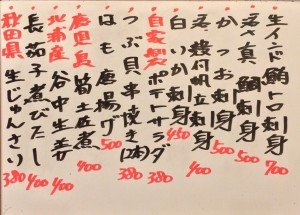 生インド鮪トロ刺身 700
活〆真鯛刺身 500
かつお刺身 500
活〆殻付帆立刺身 450
白いか刺身 450
自家製ポテトサラダ 380
つぶ貝串焼き(2本) 380
はも唐揚げ 500
鹿児島筍土佐煮 400
北海産谷中生姜 400
長茄子煮びたし 400
秋田県生じゅんさい 380